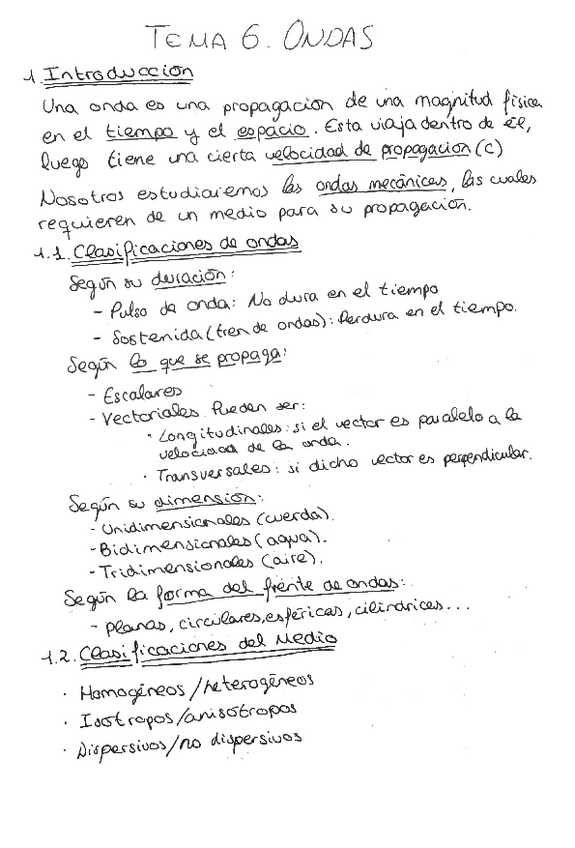 TEMA 6. ONDAS
1. Introducción
Una onda es una propagación de una magnitud física
en el tiempo y el espacio. Esta viaja dentro de él,
luego tiene una cierta velocidad de propagación (c)
Nosotros estudiaremos las ondas mecánicas, las cuales
requieren de un medio para su propagación.
1.1. Clasificaciones de ondas
Según su duración:
- Pulso de onda: No dura en el tiempo
- Sostenida (tren de ondas): Perdura en el tiempo.
Según lo que se propaga:
- Escalares
- Vectoriales. Pueden ser:
· Longitudinales: si el vector es paralelo a la
velocidad de la onda.
· Transversales: si dicho vector es perpendicular.
Según su dimensión:
- Unidimensionales (cuerda).
- Bidimensionales (agua).
- Tridimensionales (aire).
Según la forma del frente de ondas:
- planas, circulares, esféricas, cilíndricas...
1.2. Clasificaciones del Medio
· Homogéneos/heterogéneos
· Isótropos/anisótropos
· Dispersivos/no dispersivos